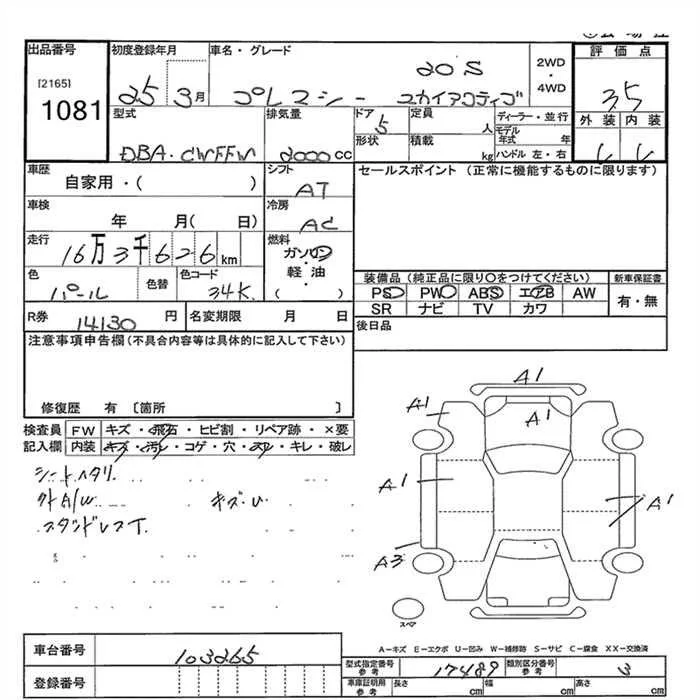 出品番号
[2165]
1081
初度登録年月
25 3月
車名・グレード
20S
プレマシー スカイアクティブ
2WD
・
4WD
評価点
3.5
外装 内装
型式
DBA・CWFFW
排気量
2000cc
ドア 5
形状
定員 人
積載 kg
ディーラー・並行
モデル年式 年
ハンドル 左・右
車歴
自家用・( )
シフト
AT
セールスポイント (正常に機能するものに限ります)
車検
年 月( 日)
冷房
AC
走行
16万3千626km
燃料
ガソリン
・
軽油
( )
色
パール
色替
色コード
34K
装備品(純正品に限り○をつけてください)
新車保証書
PS PW ABS エアB AW
有・無
SR ナビ TV カワ
R券 14130円
名変期限 月 日
後日品
注意事項申告欄(不具合内容等は具体的に記入して下さい)
修復歴 有〔箇所 〕
検査員 FW キズ・飛石・ヒビ割・リペア跡・×要
記入欄 内装 キズ・汚レ・コゲ・穴・スリ・キレ・破レ
シートヘタリ
外A/W キズ
スタッドレスT
A1
A1
A1
A1
A1
A3
スペア
A-キズ E-エクボ U-凹み W-補修跡 S-サビ C-腐食 XX-交換済
車台番号
103265
登録番号
型式指定番号参考 17489
類別区分番号参考 3
車庫証明用参考 長さ cm 幅 cm 高さ cm